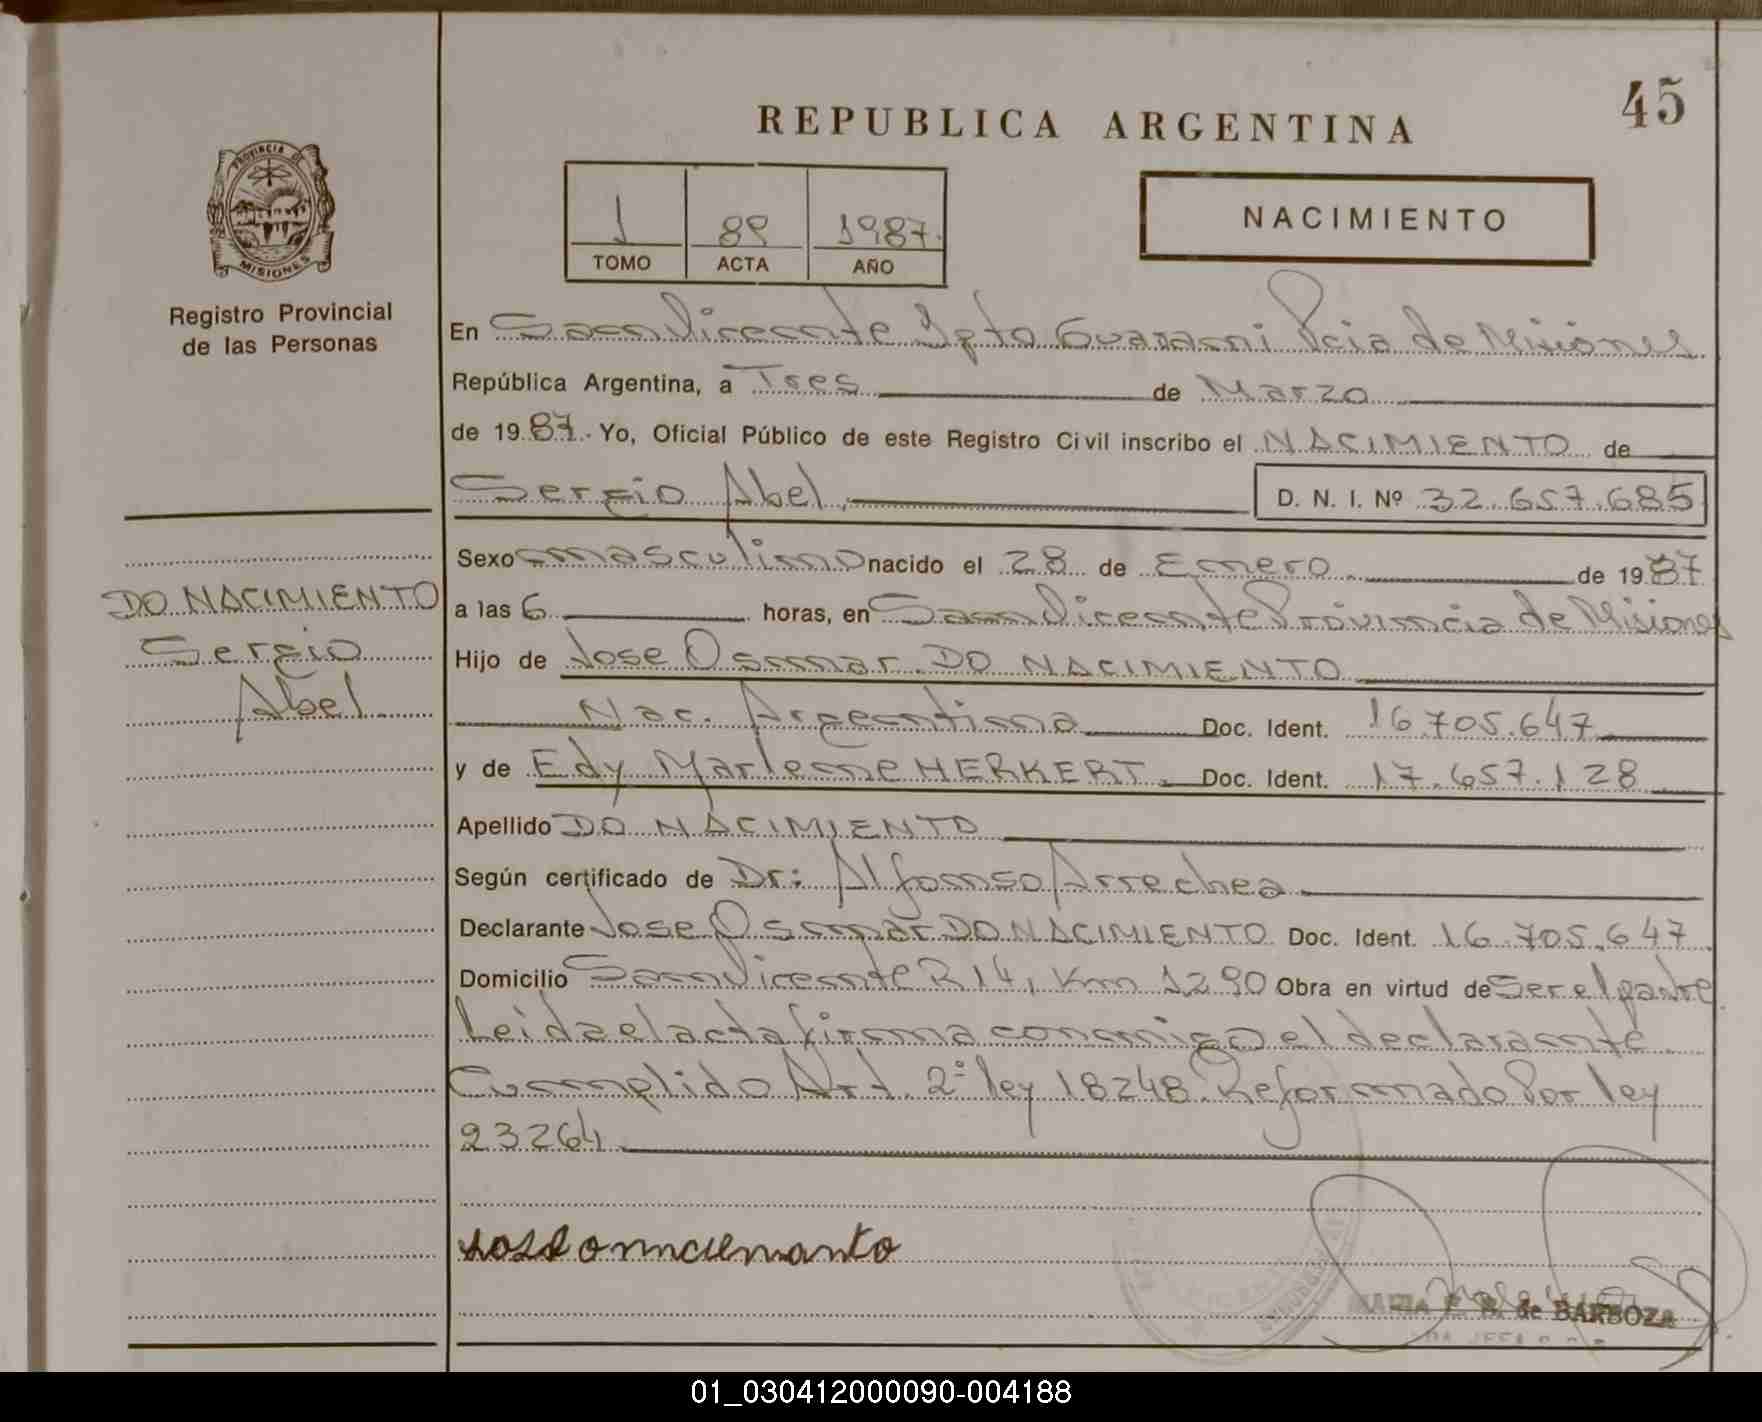 45
REPUBLICA ARGENTINA
PROVINCIA DE
MISIONES
Registro Provincial
de las Personas
1 89 1987
TOMO ACTA AÑO
NACIMIENTO
En San Vicente Dpto Guarani Pcia de Misiones
República Argentina, a Tres de Marzo
de 1987. Yo, Oficial Público de este Registro Civil inscribo el NACIMIENTO de
Sergio Abel
D. N. I. Nº 32.657.685
Sexo masculino nacido el 28 de Enero de 1987
a las 6 horas, en San Vicente Provincia de Misiones
Hijo de Jose Osmar DO NACIMIENTO
Nac. Argentina Doc. Ident. 16.705.647
y de Edy Marlene HERKERT Doc. Ident. 17.657.128
Apellido DO NACIMIENTO
Según certificado de Dr: Alfonso Arrechea
Declarante Jose Osmar DO NACIMIENTO Doc. Ident. 16.705.647
Domicilio San Vicente R 14, Km 1290 Obra en virtud de Ser el padre
Leida el acta firma conmigo el declarante
Cumplido Art. 2º ley 18248 Reformado Por ley
23264
DO NACIMIENTO
Sergio
Abel
MARIA E. B. de BARBOZA
01_030412000090-004188